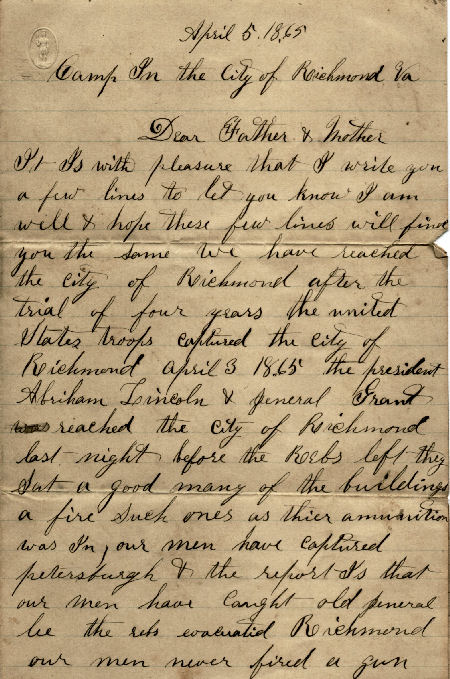 April 5. 1865
Camp In the City of Richmond Va
Dear Father & Mother
It Is with pleasure that I write you
a few lines to let you know I am
well & hope these few lines will find
you the same we have reached
the city of Richmond after the
trial of four years the united
States troops captured the city of
Richmond april 3 1865 the president
Abriham Lincoln & general Grant
was reached the city of Richmond
last night before the Rebs left they
Sat a good many of the buildings
a fire Such ones as thier amunition
was In, our men have captured
petersburgh & the report Is that
our men have Caught old general
lee the rebs evacuatid Richmond
our men never fired a gun